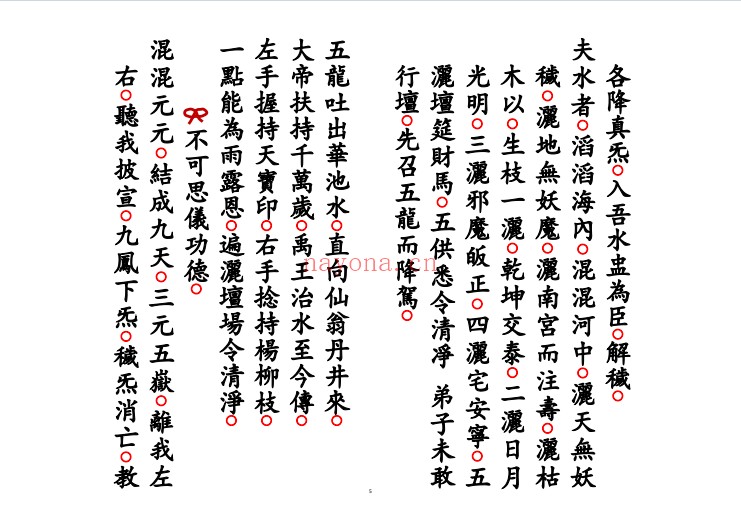 各降真炁○入吾水盅為臣○解穢○
夫水者○滔滔海內○混混河中○灑天無妖
穢○灑地無妖魔○灑南宮而注壽○灑枯
木以○生枝一灑○乾坤交泰○二灑日月
光明○三灑邪魔皈正○四灑宅安寧○五
灑壇筵財馬○五供悉令清凈 弟子未敢
行壇○先召五龍而降駕○
五龍吐出華池水○直向仙翁丹井來○
大帝扶持千萬歲○禹王治水至今傳○
左手握持天寶印○右手捻持楊柳枝○
一點能為雨露恩○遍灑壇場令清淨○
不可思儀功德○
混混元元○結成九天○三元五嶽○離我左
右○聽我披宣○九鳳下炁○穢炁消亡○教
nayona.cn
5